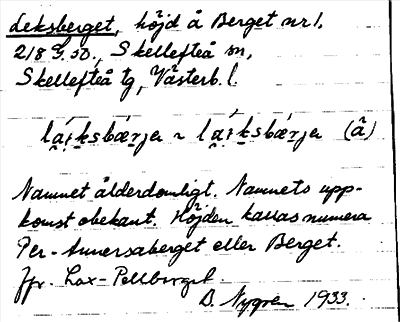 Leksberget, höjd å Berget nr 1.
218 G. 50., Skellefteå sn,
Skellefteå tg, Västerb. l.
la̯i̯ksbærja ~ la̯i̯ksbærja (å)
Namnet ålderdomligt. Namnets upp-
komst obekant. Höjden kallas numera
Per-Annersaberget eller Berget.
Jfr. Lax-Pellberget
D. Nygren 1933.